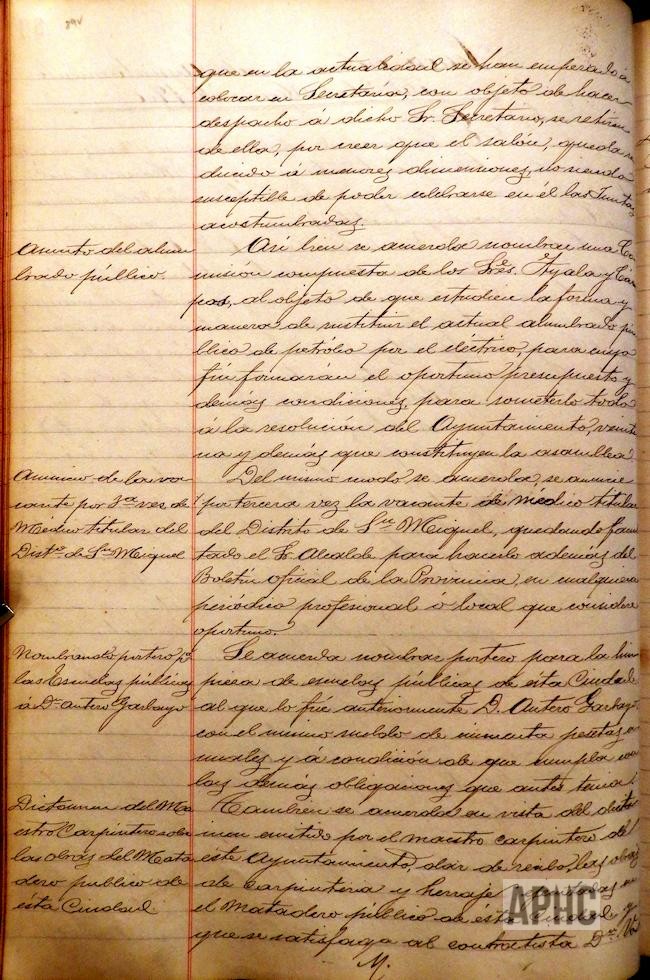 89v
que en la actualidad se han empezado á
colocar en Secretaría, con objeto de hacer
despacho á dicho Sr. Secretario, se retiren
de ella, por creer que el salón, queda re
ducido á menores dimensiones, no siendo
susceptible de poder celebrarse en él las Juntas
acostumbradas.
Asunto del alum
brado público
Así bien se acuerda nombrar una Co
misión compuesta de los Sres. Ayala y
al objeto de que estudien la forma y
manera de sustituir el actual alumbrado pú
blico de petróleo por el eléctrico, para cuyo
fin formarán el oportuno presupuesto y
demás condiciones, para someterlo todo
á la resolución del Ayuntamiento, veinte
na y demás que constituyen la asamblea.
Anuncio de la va
cante por 3ª vez de
Médico titular del
Distº de Sn Miguel
Del mismo modo se acuerda, se anuncie
por tercera vez la vacante de médico titular
del Distrito de Sn Miguel, quedando facul
tado el Sr Alcalde para hacerlo además del
Boletín oficial de la Provincia, en cualquiera
periódico profesional ó local que considere
oportuno.
Nombrando portero pª
las Escuelas públicas
á Dn Antero Garbayo
Se acuerda nombrar portero para la lim
pieza de escuelas públicas de esta Ciudad
al que lo fué anteriormente D. Antero Garbayo
con el mismo sueldo de cincuenta pesetas a
nuales y á condición de que cumpla con
las demás obligaciones que antes tenía.
Dictamen del Ma
estro Carpintero sobre
las obras del Mata
dero publico de
esta Ciudad
También se acuerda en vista del dicta
men emitido por el maestro carpintero de
este Ayuntamiento, dar de recibo, las obras
de carpintería y herraje en
el Matadero público de ésta Ciudad y
que se satisfaga al contratista Dn
APHC